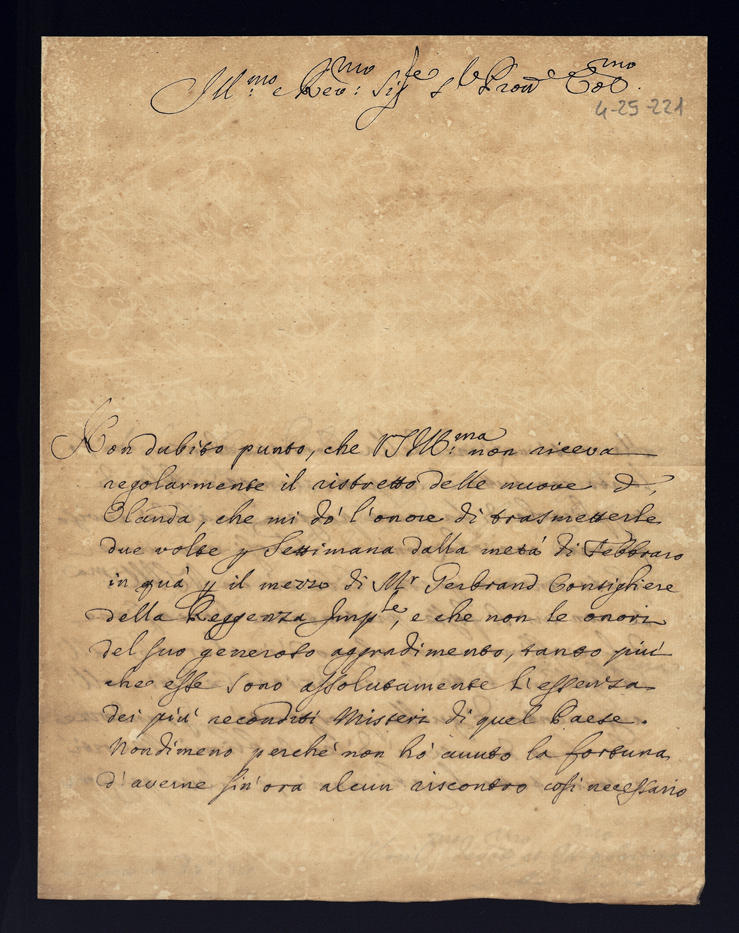 Ill:mo e Rev:mo Sig:re S.re Pron.e Col.mo
4-25-221
Non dubito punto, che VSIll:ma non riceva
regolarmente il ristretto delle nuove d'
Olanda, che mi dó l'onore di trasmetterle
due volte p Settimana dalla metá di Febbraro
in quà p il mezzo di Mr Gerbrand Consigliere
della Reggenza Imp.le, e che non le onori
del suo generoso aggradimento, tanto piú
che esse sono assolutamente l'essenza
dei piú reconditi Misteri di quel Paese.
Nondimeno perché non hó avuto la fortuna
d'averne sin'ora alcun riscontro cosi necessario